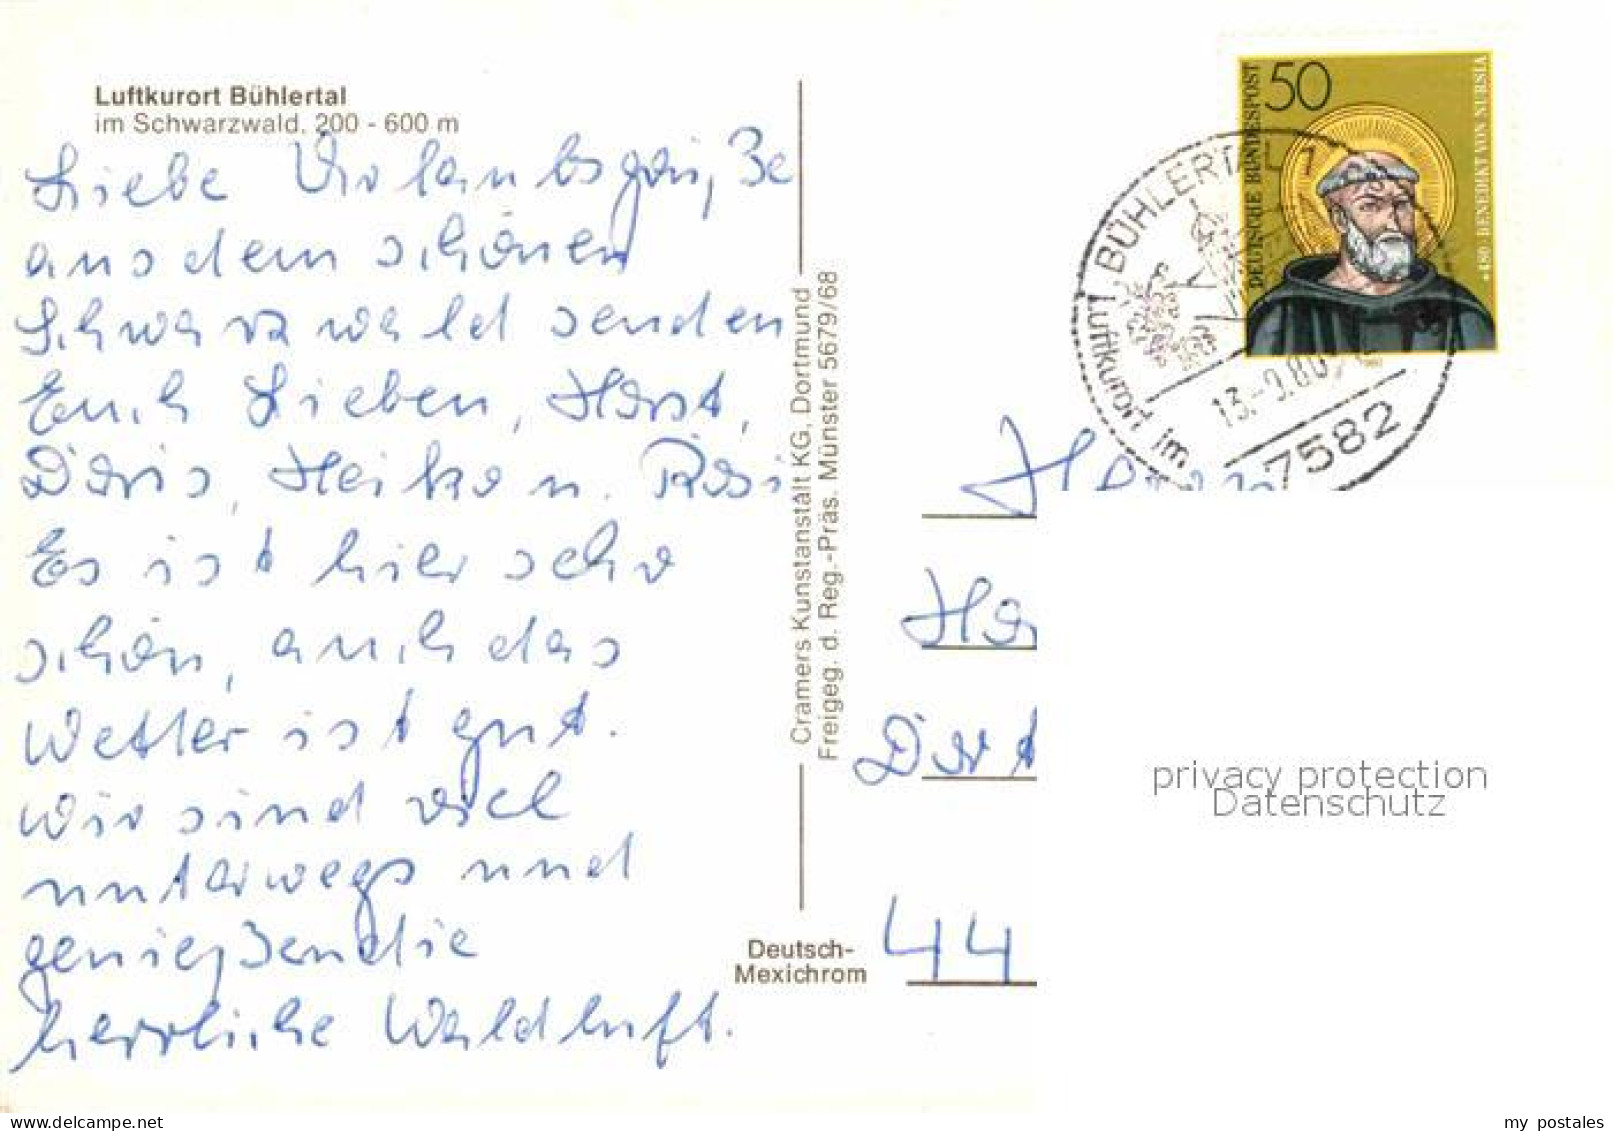 Luftkurort Bühlertal
im Schwarzwald, 200 - 600 m
Liebe Urlaubsgrüße
aus dem schönen
Schwarzwald senden
Euch Lieben, Horst,
Doris, Heiko u. Rosi
Es ist hier sehr
schön, auch das
Wetter ist gut.
Wir sind viel
unterwegs und
genießen die
herrliche Waldluft.
Cramers Kunstanstalt KG, Dortmund
Freigeg. d. Reg.-Präs. Münster 5679/68
Deutsch-
Mexichrom
50
DEUTSCHE BUNDESPOST
*480 BENEDIKT VON NURSIA
Luftkurort im
BÜHLERTAL 1
13.-9.80
7582
Dort
44
privacy protection
Datenschutz
delcampe.net
my postales